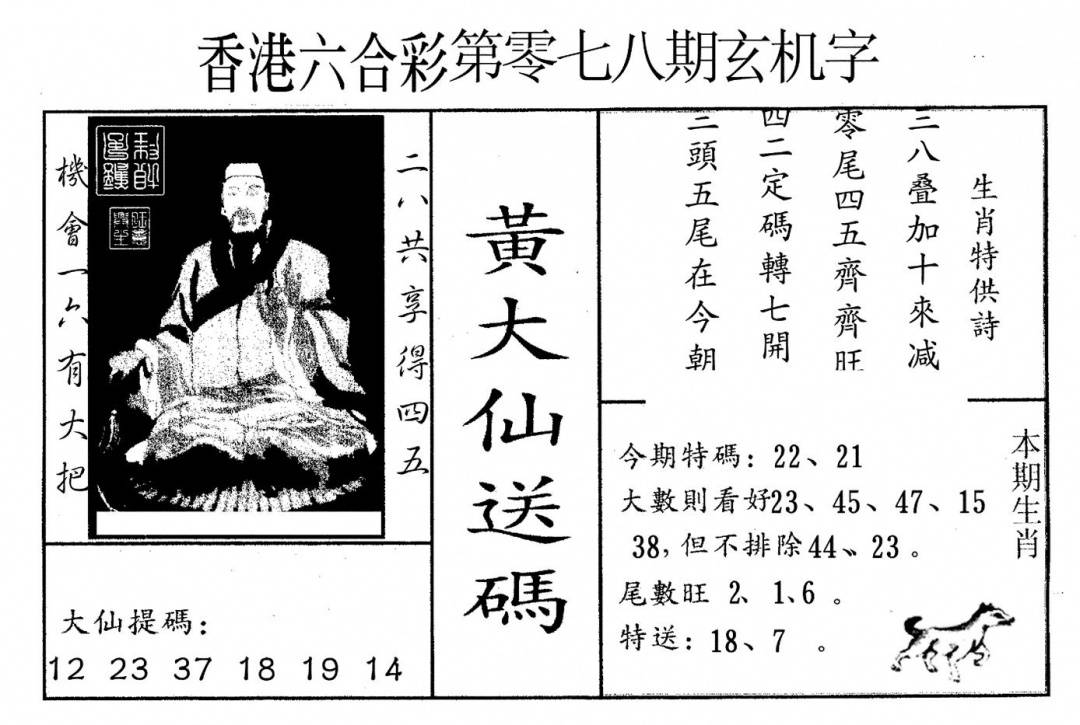 香港六合彩第零七八期玄机字
機會一六有大把
二八共享得四五
黃大仙送碼
生肖特供詩
三八叠加十來减
零尾四五齊齊旺
四二定碼轉七開
三頭五尾在今朝
本期生肖
今期特碼：22、21
大數則看好23、45、47、15
38，但不排除44、23。
尾數旺 2、1、6 。
特送：18、7 。
大仙提碼：
12 23 37 18 19 14